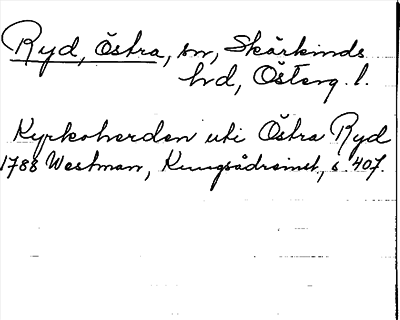 Ryd, Östra, sn, Skärkinds
hd, Österg. l.
Kyrkoherden uti Östra Ryd
1788 Westman, Kungsådreinet, s. 407.